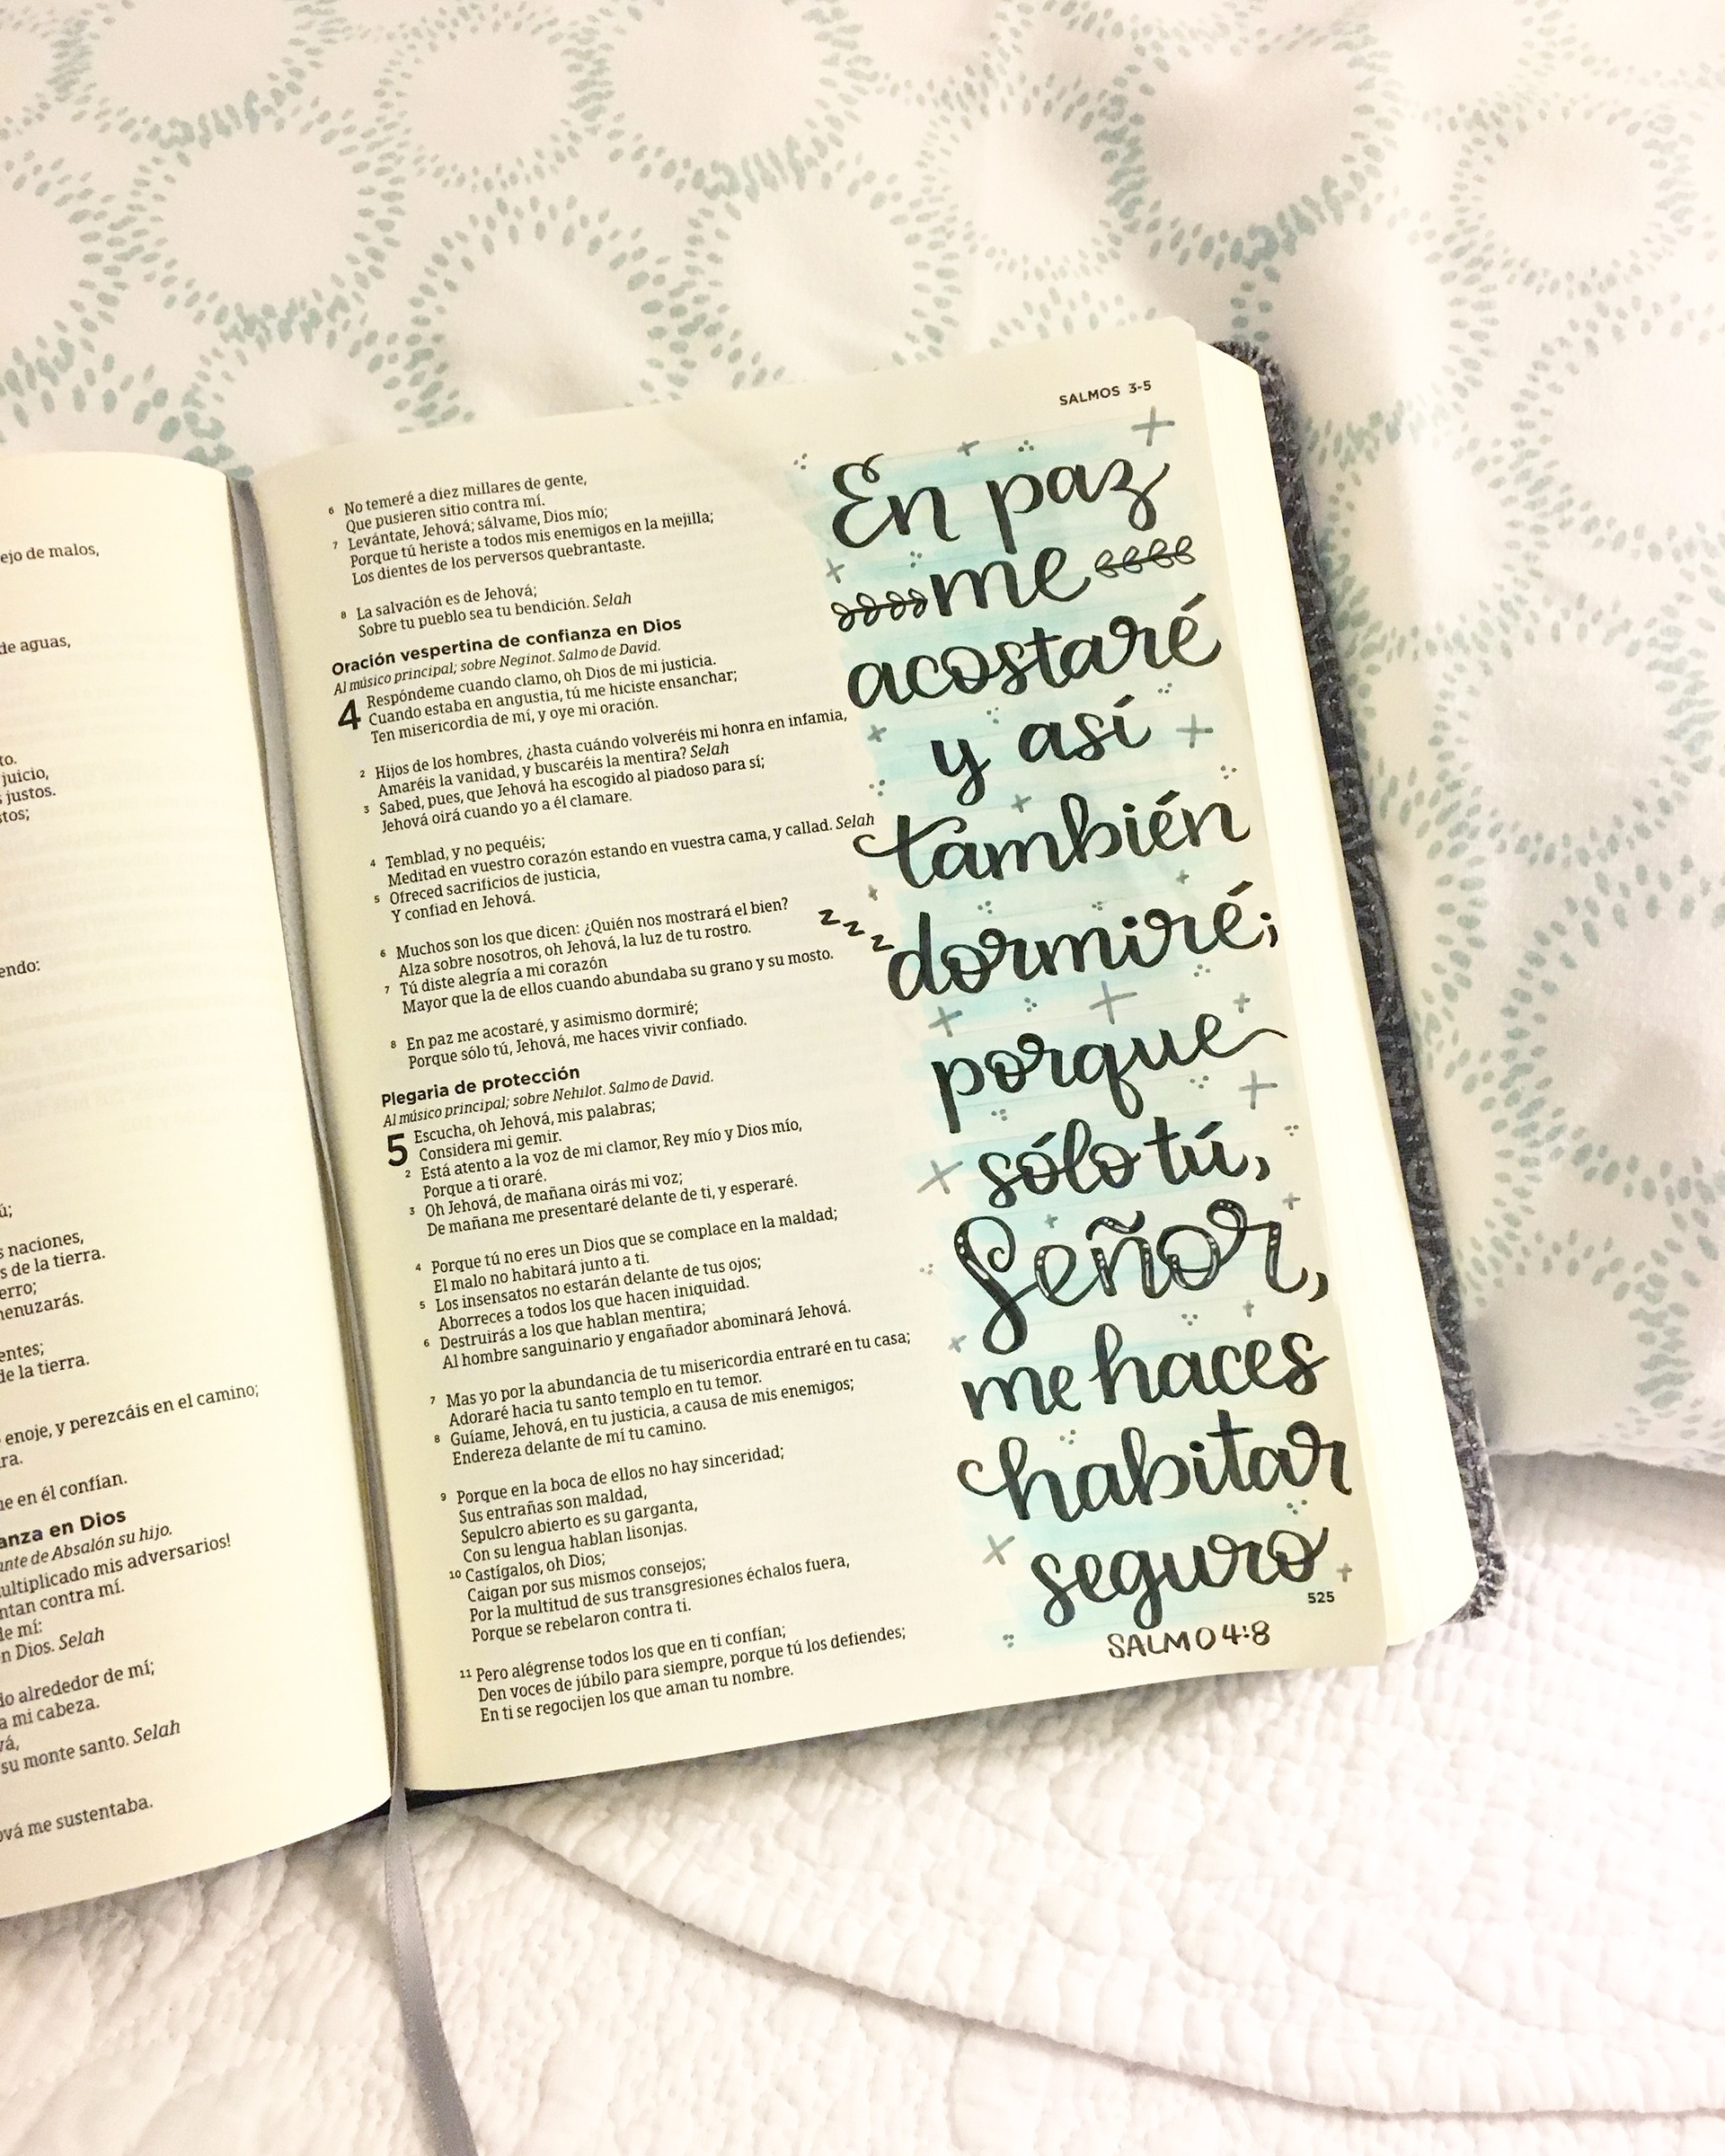 ejo de malos,
de aguas,
to.
juicio,
justos.
stos;
endo:
ú;
naciones,
s de la tierra.
erro;
menuzarás.
entes;
de la tierra.
enoje, y perezcáis en el camino;
ra.
ue en él confían.
anza en Dios
ante de Absalón su hijo.
ultiplicado mis adversarios!
ntan contra mí.
de mí:
n Dios. Selah
do alrededor de mí;
a mi cabeza.
vá,
su monte santo. Selah
ová me sustentaba.
SALMOS 3-5
6 No temeré a diez millares de gente,
Que pusieren sitio contra mí.
7 Levántate, Jehová; sálvame, Dios mío;
Porque tú heriste a todos mis enemigos en la mejilla;
Los dientes de los perversos quebrantaste.
8 La salvación es de Jehová;
Sobre tu pueblo sea tu bendición. Selah
Oración vespertina de confianza en Dios
Al músico principal; sobre Neginot. Salmo de David.
4 Respóndeme cuando clamo, oh Dios de mi justicia.
Cuando estaba en angustia, tú me hiciste ensanchar;
Ten misericordia de mí, y oye mi oración.
2 Hijos de los hombres, ¿hasta cuándo volveréis mi honra en infamia,
Amaréis la vanidad, y buscaréis la mentira? Selah
3 Sabed, pues, que Jehová ha escogido al piadoso para sí;
Jehová oirá cuando yo a él clamare.
4 Temblad, y no pequéis;
Meditad en vuestro corazón estando en vuestra cama, y callad. Selah
5 Ofreced sacrificios de justicia,
Y confiad en Jehová.
6 Muchos son los que dicen: ¿Quién nos mostrará el bien?
Alza sobre nosotros, oh Jehová, la luz de tu rostro.
7 Tú diste alegría a mi corazón
Mayor que la de ellos cuando abundaba su grano y su mosto.
8 En paz me acostaré, y asimismo dormiré;
Porque sólo tú, Jehová, me haces vivir confiado.
Plegaria de protección
Al músico principal; sobre Nehilot. Salmo de David.
5 Escucha, oh Jehová, mis palabras;
Considera mi gemir.
2 Está atento a la voz de mi clamor, Rey mío y Dios mío,
Porque a ti oraré.
3 Oh Jehová, de mañana oirás mi voz;
De mañana me presentaré delante de ti, y esperaré.
4 Porque tú no eres un Dios que se complace en la maldad;
El malo no habitará junto a ti.
5 Los insensatos no estarán delante de tus ojos;
Aborreces a todos los que hacen iniquidad.
6 Destruirás a los que hablan mentira;
Al hombre sanguinario y engañador abominará Jehová.
7 Mas yo por la abundancia de tu misericordia entraré en tu casa;
Adoraré hacia tu santo templo en tu temor.
8 Guíame, Jehová, en tu justicia, a causa de mis enemigos;
Endereza delante de mí tu camino.
9 Porque en la boca de ellos no hay sinceridad;
Sus entrañas son maldad,
Sepulcro abierto es su garganta,
Con su lengua hablan lisonjas.
10 Castígalos, oh Dios;
Caigan por sus mismos consejos;
Por la multitud de sus transgresiones échalos fuera,
Porque se rebelaron contra ti.
11 Pero alégrense todos los que en ti confían;
Den voces de júbilo para siempre, porque tú los defiendes;
En ti se regocijen los que aman tu nombre.
En paz
me
acostaré
y así
también
zzz
dormiré;
porque
sólo tú,
Señor,
me haces
habitar
seguro
525
SALMO 4:8